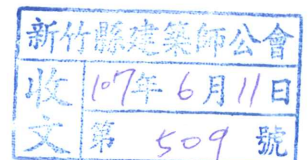 新竹縣建築師公會
收文
107年6月11日
第 509 號